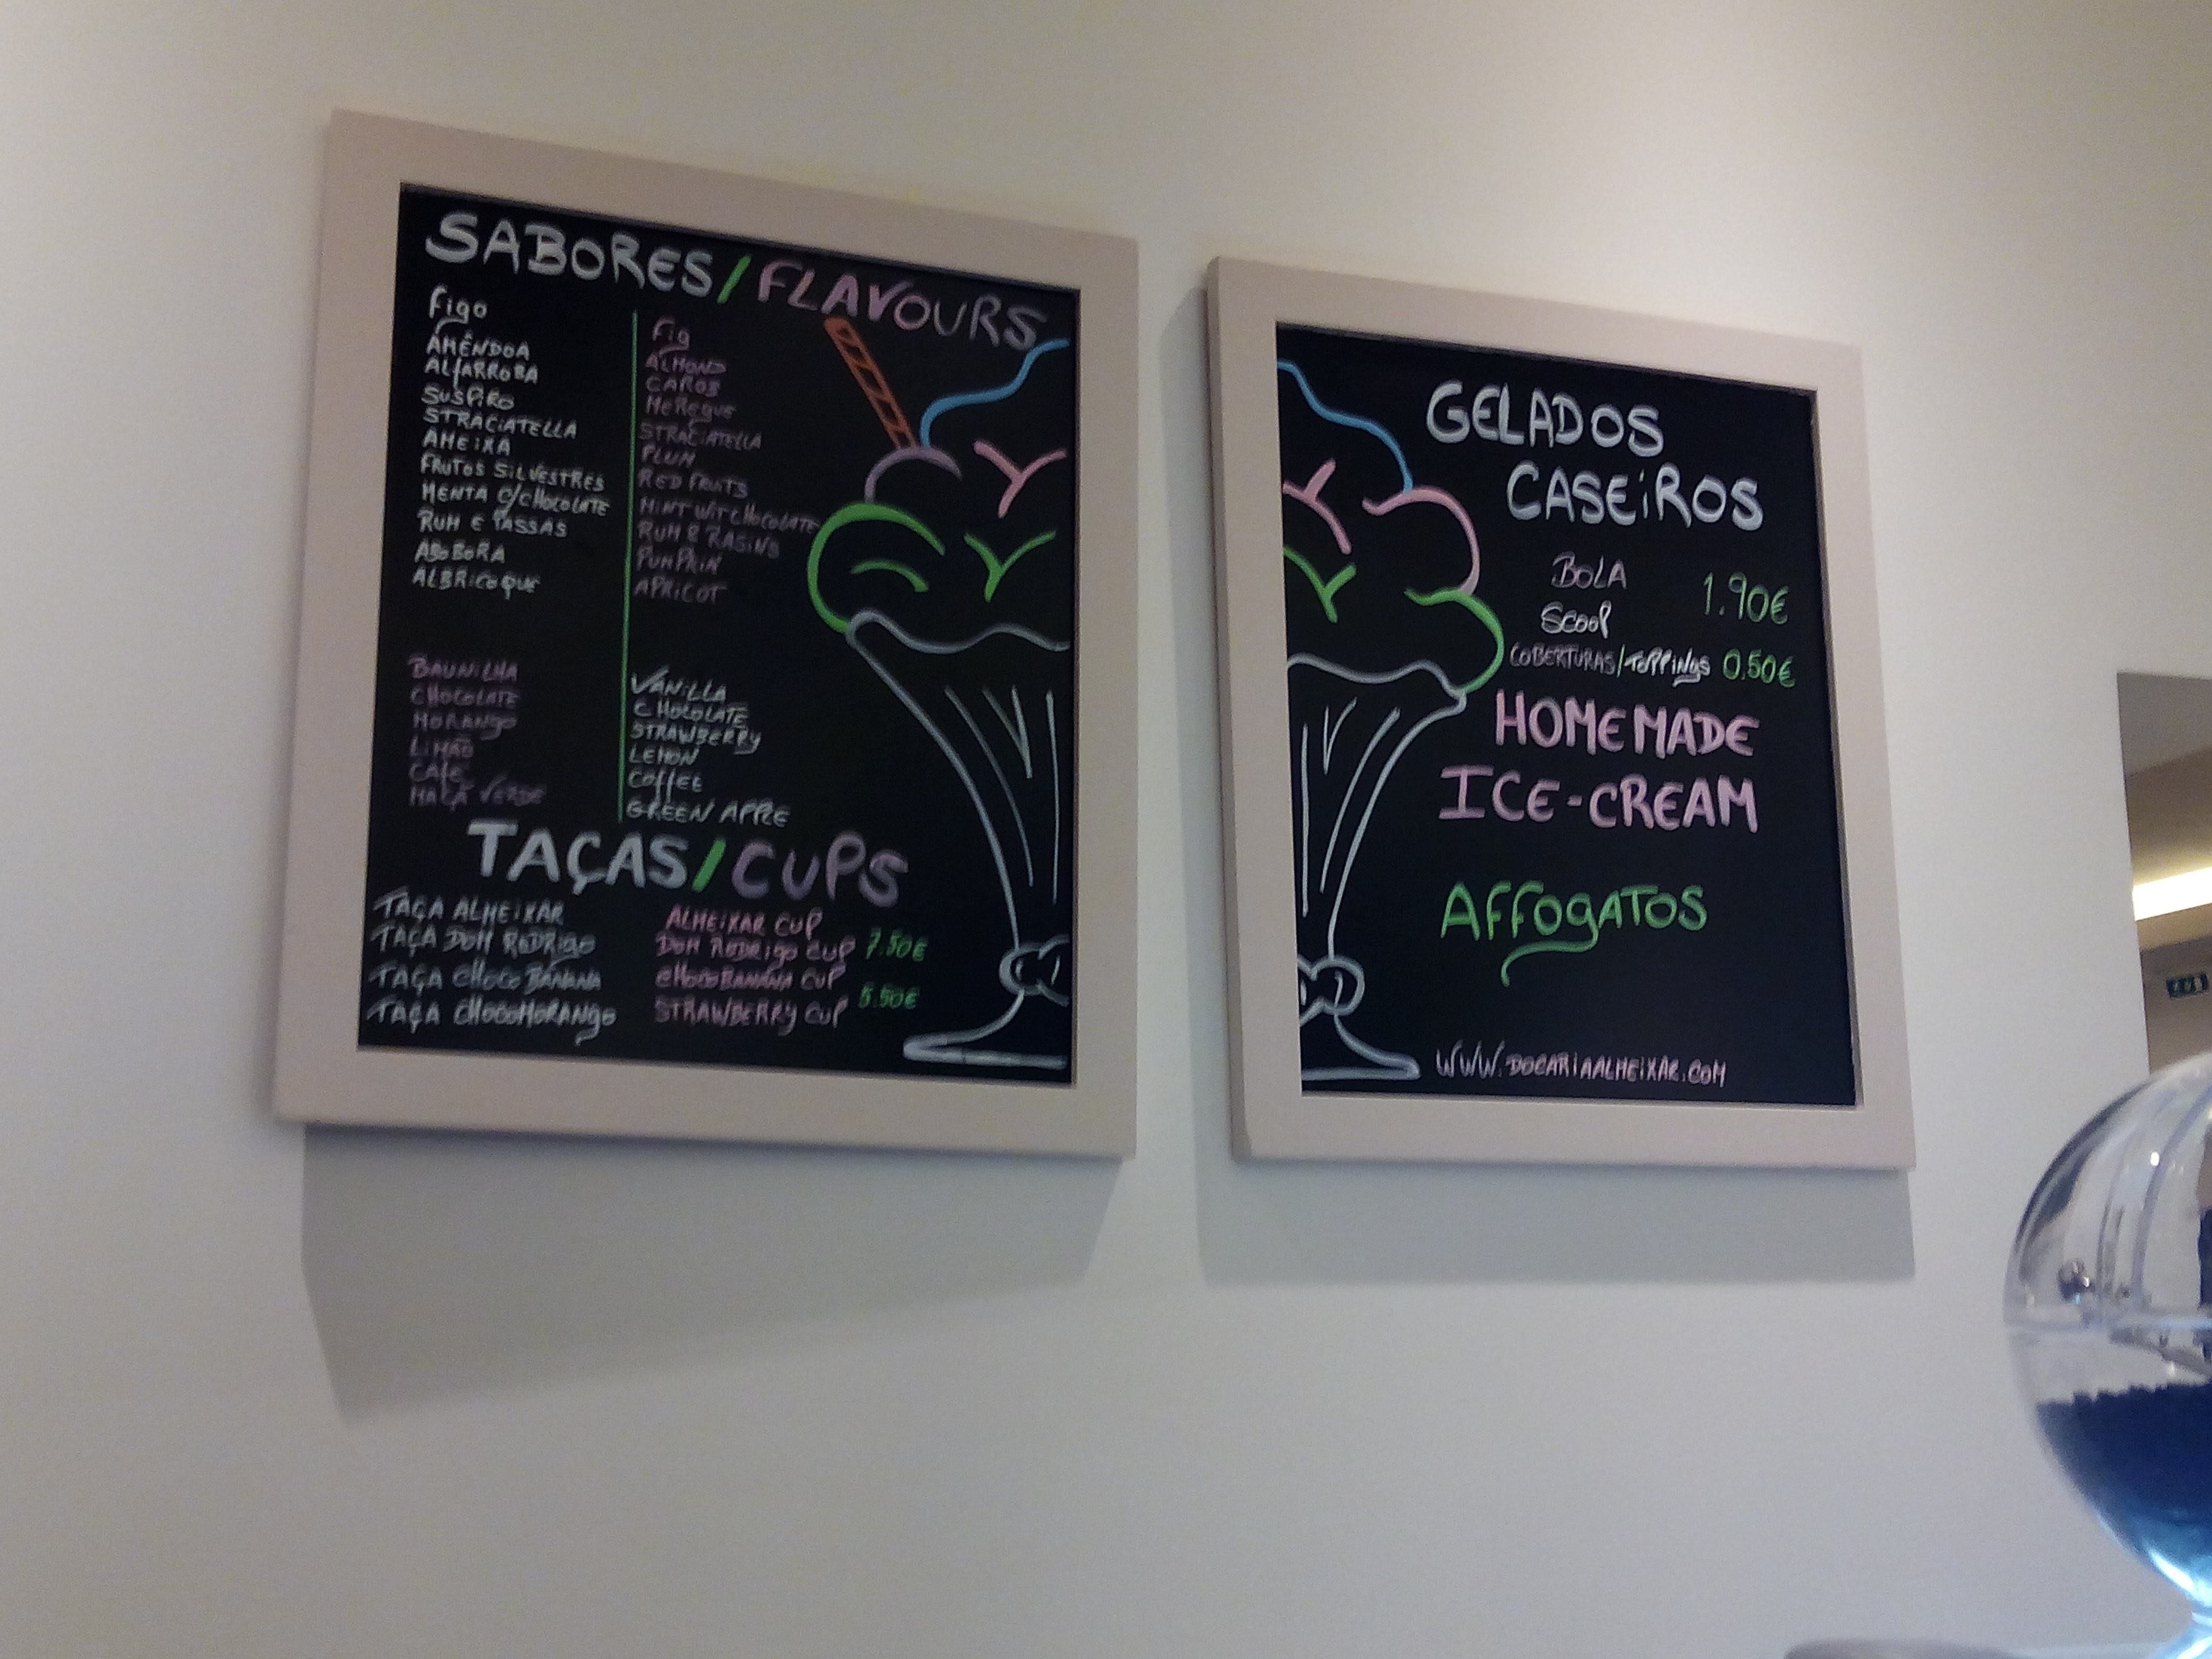 SABORES/FLAVOURS
Figo
AMÊNDOA
ALfARROBA
SUSPiRO
STRACiATELLA
AMEiXA
FRUTOS SiLVESTRES
MENTA c/CHOCOLATE
RUM E PASSAS
ABOBORA
ALBRiCOQUE
BAUNiLHA
CHOCOLATE
MORANgO
LiMÃO
CAfÉ
MAÇÃ VERDE
Fig
ALMOND
CAROB
MEREgUE
STRACiATELLA
PLUM
RED FRUITS
MiNT WiT CHOCOLATE
RUM & RASiNS
PUMPKiN
APRiCOT
VANiLLA
CHOCOLATE
STRAWBERRy
LEMON
COffEE
GREEN APPLE
TAÇAS/CUPS
TAÇA ALMEiXAR
TAÇA DOM RODRigO
TAÇA CHOCO BANANA
TAÇA CHOCOMORANgO
ALMEiXAR CUP
DOM RODRigO CUP 7.50€
CHOCOBANANA CUP
STRAWBERRy CUP 5.50€
GELADOS
CASEiROS
BOLA
SCOOP
1.90€
COBERTURAS/TOPPiNgS 0.50€
HOMEMADE
ICE-CREAM
AffOgATOS
WWW.DOCARiAALMEiXAR.COM